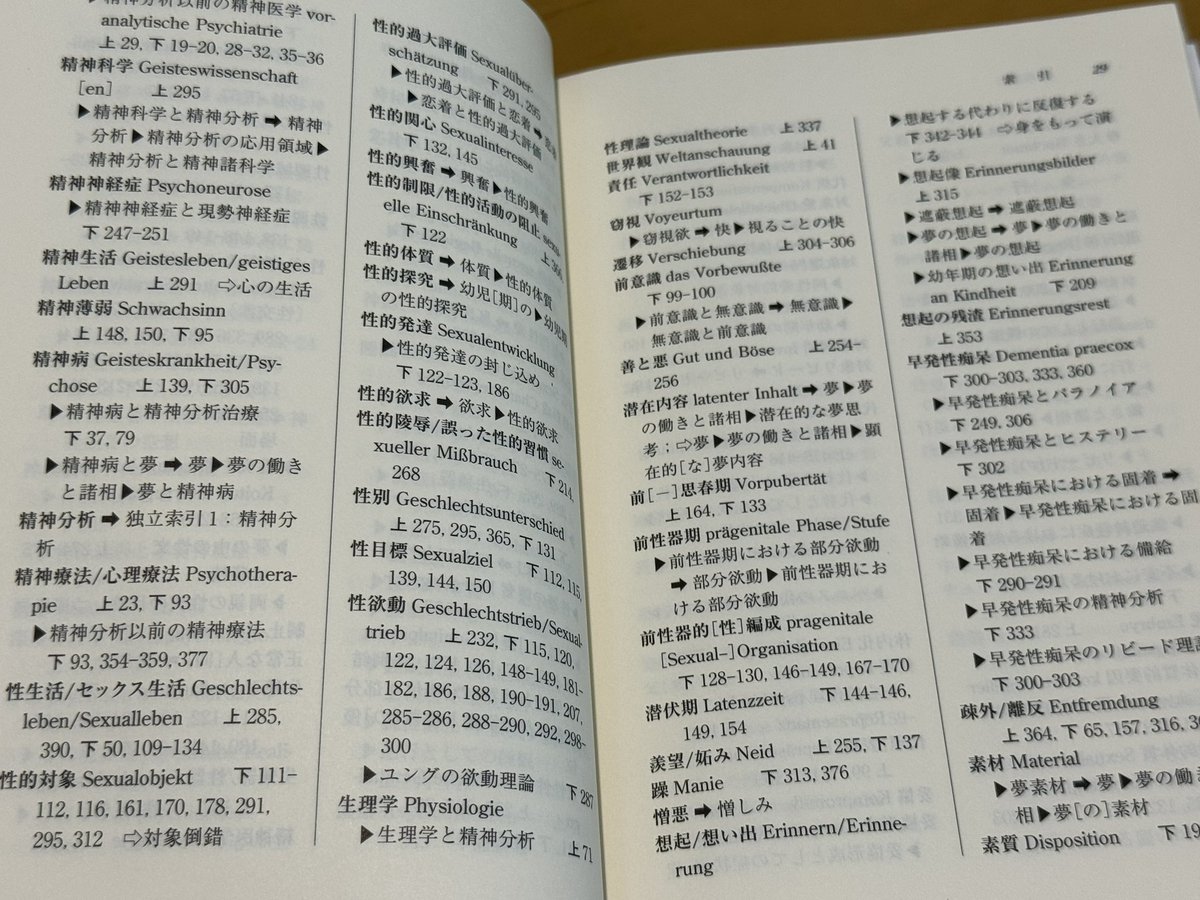 ▶精神分析以前の精神医学 vor-
analytische Psychiatrie
上 29, 下 19-20, 28-32, 35-36
精神科学 Geisteswissenschaft
[en] 上 295
▶精神科学と精神分析 ➡ 精神
分析▶精神分析の応用領域▶
精神分析と精神諸科学
精神神経症 Psychoneurose
▶精神神経症と現勢神経症
下 247-251
精神生活 Geistesleben/geistiges
Leben 上 291 ⇨心の生活
精神薄弱 Schwachsinn
上 148, 150, 下 95
精神病 Geisteskrankheit/Psy-
chose 上 139, 下 305
▶精神病と精神分析治療
下 37, 79
▶精神病と夢 ➡ 夢▶夢の働き
と諸相▶夢と精神病
精神分析 ➡ 独立索引 1：精神分
析
精神療法/心理療法 Psychothera-
pie 上 23, 下 93
▶精神分析以前の精神療法
下 93, 354-359, 377
性生活/セックス生活 Geschlechts-
leben/Sexualleben 上 285,
390, 下 50, 109-134
性的対象 Sexualobjekt 下 111-
112, 116, 161, 170, 178, 291,
295, 312 ⇨対象倒錯
性的過大評価 Sexualüber-
schätzung 下 291, 295
▶性的過大評価と恋着 ➡
▶恋着と性的過大評価
性的関心 Sexualinteresse
下 132, 145
性的興奮 ➡ 興奮▶性的興奮
性的制限/性的活動の阻止 sexu-
elle Einschränkung 上 366,
下 122
性的体質 ➡ 体質▶性的体質
性的探究 ➡ 幼児[期]の▶幼児期
の性的探究
性的発達 Sexualentwicklung
▶性的発達の封じ込め
下 122-123, 186
性的欲求 ➡ 欲求▶性的欲求
性的陵辱/誤った性的習慣 se-
xueller Mißbrauch 下 214,
268
性別 Geschlechtsunterschied
上 275, 295, 365, 下 131
性目標 Sexualziel 下 112, 115,
139, 144, 150
性欲動 Geschlechtstrieb/Sexual-
trieb 上 232, 下 115, 120,
122, 124, 126, 148-149, 181-
182, 186, 188, 190-191, 207,
285-286, 288-290, 292, 298-
300
▶ユングの欲動理論 下 287
生理学 Physiologie
▶生理学と精神分析 上 71
索 引 29
性理論 Sexualtheorie 上 337
世界観 Weltanschauung 上 41
責任 Verantwortlichkeit
下 152-153
窃視 Voyeurtum
▶窃視欲 ➡ 快▶視ることの快
遷移 Verschiebung 上 304-306
前意識 das Vorbewußte
下 99-100
▶前意識と無意識 ➡ 無意識▶
無意識と前意識
善と悪 Gut und Böse 上 254-
256
潜在内容 latenter Inhalt ➡ 夢▶夢
の働きと諸相▶潜在的な夢思
考；⇨夢▶夢の働きと諸相▶顕
在的[な]夢内容
前[−]思春期 Vorpubertät
上 164, 下 133
前性器期 prägenitale Phase/Stufe
▶前性器期における部分欲動
➡ 部分欲動▶前性器期にお
ける部分欲動
前性器的[性]編成 pragenitale
[Sexual-]Organisation
下 128-130, 146-149, 167-170
潜伏期 Latenzzeit 下 144-146,
149, 154
羨望/妬み Neid 上 255, 下 137
躁 Manie 下 313, 376
憎悪 ➡ 憎しみ
想起/想い出 Erinnern/Erinne-
rung
▶想起する代わりに反復する
下 342-344 ⇨身をもって演
じる
▶想起像 Erinnerungsbilder
上 315
▶遮蔽想起 ➡ 遮蔽想起
▶夢の想起 ➡ 夢▶夢の働きと
諸相▶夢の想起
▶幼年期の想い出 Erinnerung
an Kindheit 下 209
想起の残渣 Erinnerungsrest
上 353
早発性痴呆 Dementia praecox
下 300-303, 333, 360
▶早発性痴呆とパラノイア
下 249, 306
▶早発性痴呆とヒステリー
下 302
▶早発性痴呆における固着 ➡
固着▶早発性痴呆における固
着
▶早発性痴呆における備給
下 290-291
▶早発性痴呆の精神分析
下 333
▶早発性痴呆のリビード理論
下 300-303
疎外/離反 Entfremdung
上 364, 下 65, 157, 316,
素材 Material
▶夢素材 ➡ 夢▶夢の働き
相▶夢[の]素材
素質 Disposition 下 19